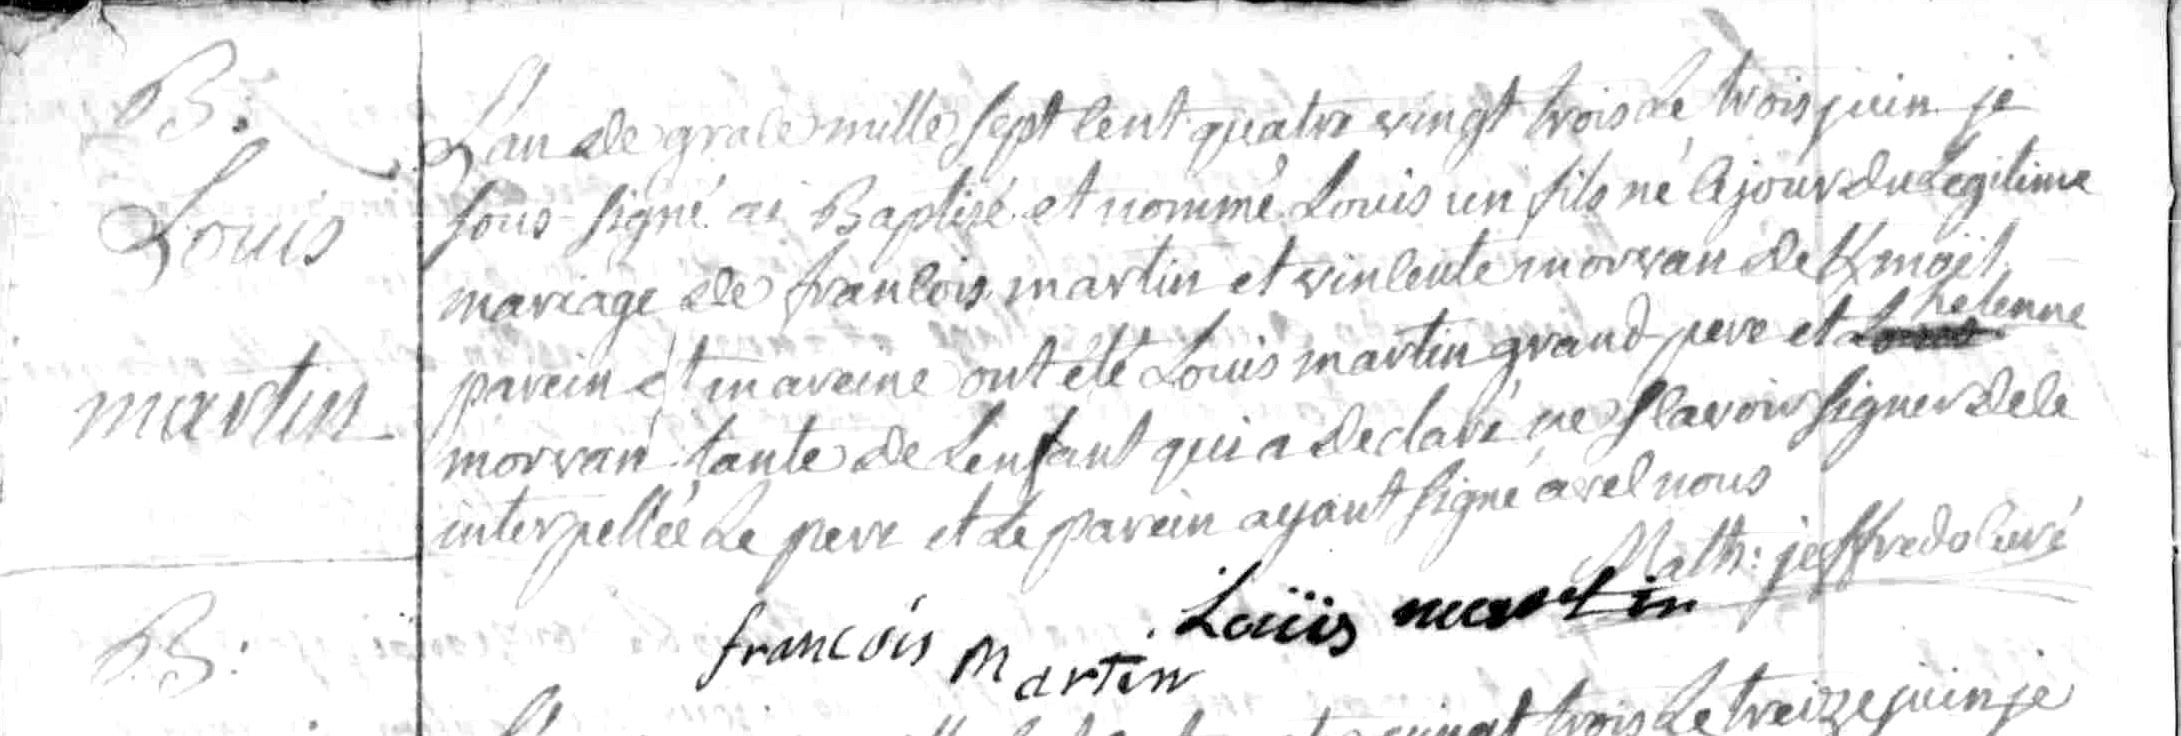 B:
Louis
martin
L'an de grace mille sept cent quatre vingt trois le trois juin je
sous-signé ai Baptisé et nommé Louis un fils né le jour du Legitime
mariage de francois martin et vincente morvan de
parein et mareine ont été Louis martin grand pere et helenne
morvan tante de L'enfant qui a declaré ne sçavoir signer de ce
interpellée Le pere et Le parein ayant signé avec nous
Math: jeffredo curé
Loüis martin
francois Martin
B:
vingt trois Le treize juin je